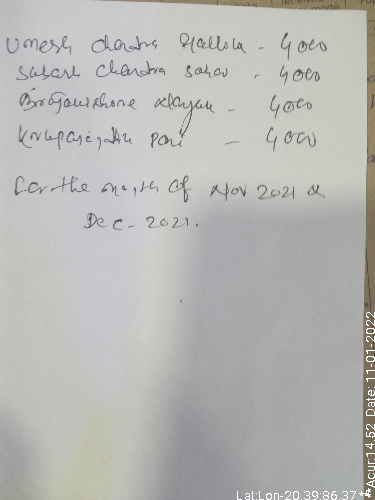 Umesh Chandra Mallick - 4000
Subash Chandra Sahoo - 4000
Brajakishore Nayak - 4000
Pani - 4000
For the month of Nov 2021 &
Dec - 2021.
Lat:Lon-20.39:86.37***Acur:14.52 Date: 11-01-2022